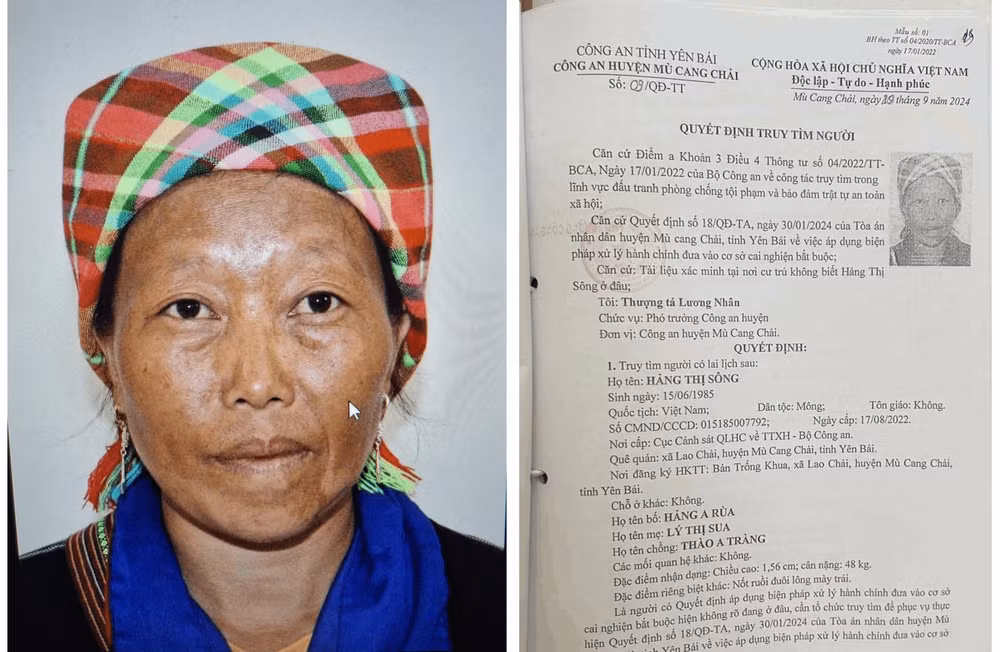 Mẫu số: 01
BH theo TT số 04/2020/TT-BCA
ngày 17/01/2022
CÔNG AN TỈNH YÊN BÁI
CÔNG AN HUYỆN MÙ CANG CHẢI
Số: 09/QĐ-TT
CỘNG HÒA XÃ HỘI CHỦ NGHĨA VIỆT NAM
Độc lập - Tự do - Hạnh phúc
Mù Cang Chải, ngày 19 tháng 9 năm 2024
QUYẾT ĐỊNH TRUY TÌM NGƯỜI
Căn cứ Điểm a Khoản 3 Điều 4 Thông tư số 04/2022/TT-
BCA, Ngày 17/01/2022 của Bộ Công an về công tác truy tìm trong
lĩnh vực đấu tranh phòng chống tội phạm và bảo đảm trật tự an toàn
xã hội;
Căn cứ Quyết định số 18/QĐ-TA, ngày 30/01/2024 của Tòa án
nhân dân huyện Mù cang Chải, tỉnh Yên Bái về việc áp dụng biện
pháp xử lý hành chính đưa vào cơ sở cai nghiện bắt buộc;
Căn cứ: Tài liệu xác minh tại nơi cư trú không biết Hảng Thị
Sông ở đâu;
Tôi: Thượng tá Lương Nhân
Chức vụ: Phó trưởng Công an huyện
Đơn vị: Công an huyện Mù Cang Chải.
QUYẾT ĐỊNH:
1. Truy tìm người có lai lịch sau:
Họ tên: HẢNG THỊ SÔNG
Sinh ngày: 15/06/1985
Quốc tịch: Việt Nam; Dân tộc: Mông; Tôn giáo: Không.
Số CMND/CCCD: 015185007792; Ngày cấp: 17/08/2022.
Nơi cấp: Cục Cảnh sát QLHC về TTXH - Bộ Công an.
Quê quán: xã Lao Chải, huyện Mù Cang Chải, tỉnh Yên Bái.
Nơi đăng ký HKTT: Bản Trống Khua, xã Lao Chải, huyện Mù Cang Chải,
tỉnh Yên Bái.
Chỗ ở khác: Không.
Họ tên bố: HẢNG A RÙA
Họ tên mẹ: LÝ THỊ SUA
Họ tên chồng: THÀO A TRẢNG
Các mối quan hệ khác: Không.
Đặc điểm nhận dạng: Chiều cao: 1,56 cm; cân nặng: 48 kg.
Đặc điểm riêng biệt khác: Nốt ruồi đuôi lông mày trái.
Là người có Quyết định áp dụng biện pháp xử lý hành chính đưa vào cơ sở
cai nghiện bắt buộc hiện không rõ đang ở đâu, cần tổ chức truy tìm để phục vụ thực
hiện Quyết định số 18/QĐ-TA, ngày 30/01/2024 của Tòa án nhân dân huyện Mù
tỉnh Yên Bái về việc áp dụng biện pháp xử lý hành chính đưa vào cơ sở